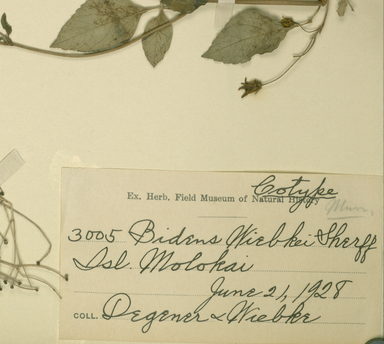 Cotype
Ex. Herb. Field Museum of Natural History
3005 Bidens Wiebkei Sherff
Isl. Molokai
June 21, 1928
COLL. Degener & Wiebke